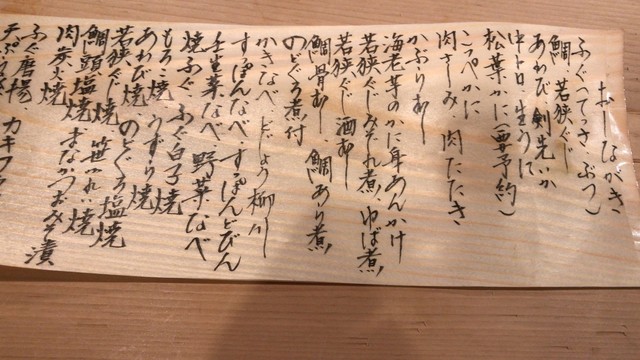 おしながき
ふぐ(てっさ、ぶつ)
鯛、若狭ぐじ
あわび、剣先いか
中トロ、生うに
松葉かに(要予約)
こっぺかに
肉さしみ、肉たたき
かぶらむし
海老芋のかに身あんかけ
若狭ぐじみぞれ煮、ゆば煮
若狭ぐじ酒むし
鯛骨むし、鯛あら煮
のどぐろ煮付
かきなべ、どじょう柳川
すっぽんなべ、すっぽんどびん
壬生菜なべ、野菜なべ
焼ふぐ、ふぐ白子焼
もろこ焼、うずら焼
あわび焼、のどぐろ塩焼
若狭ぐじ焼、笹かれい焼
鯛頭塩焼、まながつおみそ漬
肉炭火焼
ふぐ唐揚、カキフ
天ぷら